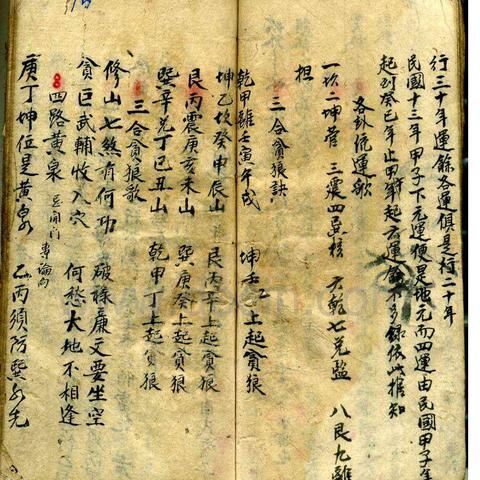 行三十年運餘各運俱是行二十年
民國十三年甲子下元運便是地元而四運由民國甲子年
起到癸巳年止甲午年起六運餘不多錄依此推知
各卦統運歌
一坎二坤管 三震四巽核 六乾七兌監 八艮九離
担
三合貪狼訣
乾甲離壬寅午戌 坤壬乙上起貪狼
坤乙坎癸申辰山 艮丙辛上起貪狼
艮丙震庚亥未山 巽庚癸上起貪狼
巽辛兌丁巳丑山 乾甲丁上起貪狼
三合貪狼歌
修山七煞有何功 破祿廉文要坐空
貪巨武輔收入穴 何愁大地不相逢
四路黃泉 豆開門 專論向
庚丁坤位是黃泉 乙丙須防巽水先